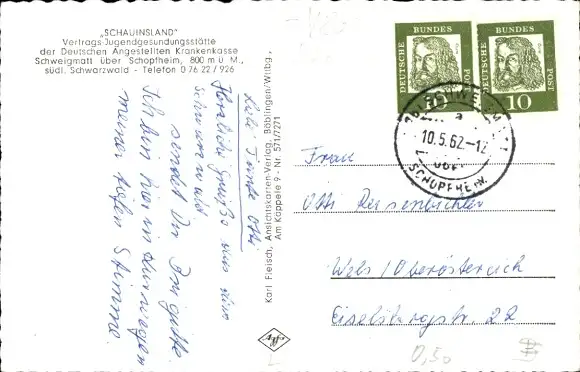 „SCHAUINSLAND"
Vertrags-Jugendgesundungsstätte
der Deutschen Angestellten Krankenkasse
Schweigmatt über Schopfheim, 800 m ü M.,
südl. Schwarzwald - Telefon 0 76 22 / 926
Liebe Tante Otti
Herzliche Grüße aus dem
Schwarzwald
sendet Dir Brigitte.
Ich bin hier in Kur wegen
meiner tiefen Stimme.
Karl Fleisch, Ansichtskarten-Verlag, Böblingen/Wttbg.,
Am Käppele 9 - Nr. 571/7271
DEUTSCHE
BUNDES
POST
DEUTSCHE
BUNDES
POST
10
10.5.62-12
SCHOPFHEIM
Frau
Otti
Wels/Oberösterreich
Eiselsbergstr. 22
0,50